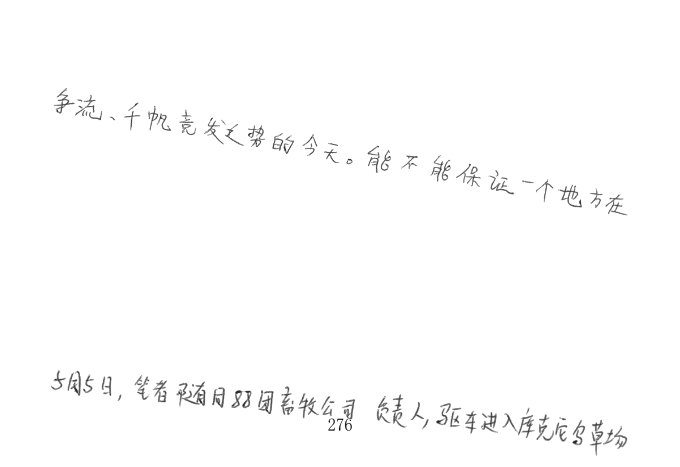 争流、千帆竞发之势的今天。能不能保证一个地方在
5月5日,笔者随同88团畜牧公司 负责人,驱车进入库克尼乌草场
276